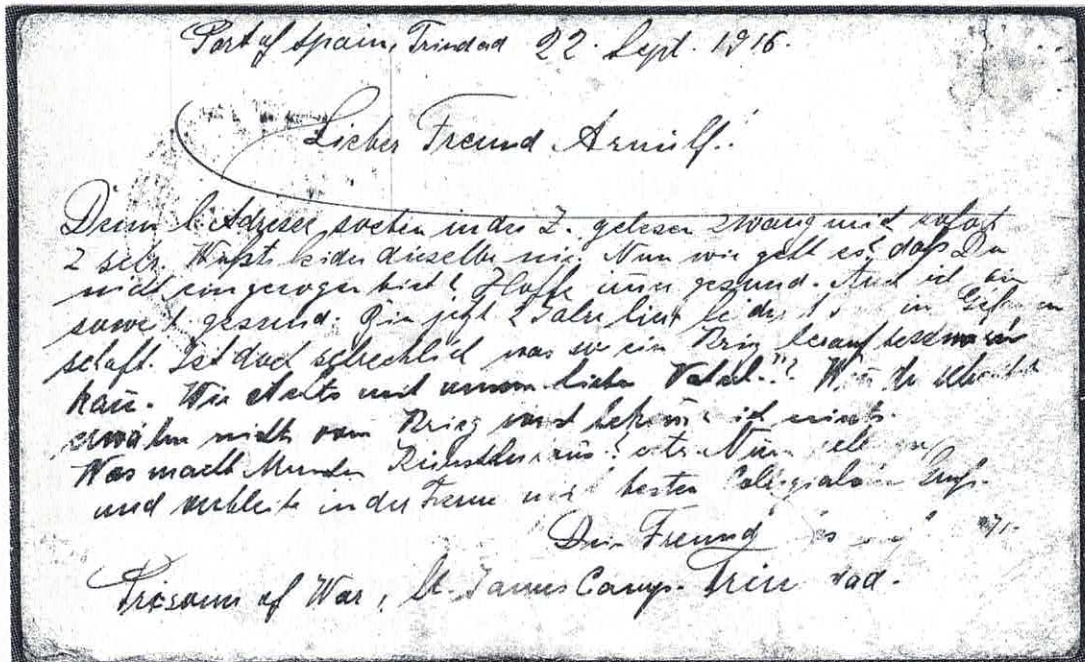 Port of Spain, Trindad 22. Sept. 1916.
Lieber Freund Arnulf!
Deine l. Adresse soeben in der Z. gelesen zwang mich sofort
z. schr. Wußte leider dieselbe nie. Nun wie geht es, daß Du
nicht eingezogen bist? Hoffe immer gesund. Auch ich bin
soweit gesund. Bin jetzt 2 Jahre hier leider in
schaft. Ist doch schrecklich was so ein Krieg heraufbeschwören
kann. Wie steht's mit unserem lieben Du schreibst
erwähn nichts vom Krieg sonst bekomme ich nichts.
Was macht Nun
und verbleibe in der Ferne mit besten Gruß.
Dein Freund
Prisoner of War, St. James Camp. Trin dad.